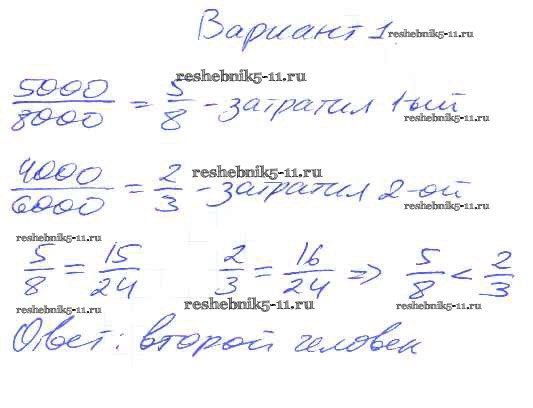 Вариант 1.
reshebnik5-11.ru
reshebnik5-11.ru
5000/8000 = 5/8 - затратил 1-ый
reshebnik5-11.ru
reshebnik5-11.ru
4000/6000 = 2/3 - затратил 2-ой
reshebnik5-11.ru
reshebnik5-11.ru
5/8 = 15/24 2/3 = 16/24 => 5/8 < 2/3
reshebnik5-11.ru reshebnik5-11.ru reshebnik5-11.ru
Ответ: второй человек